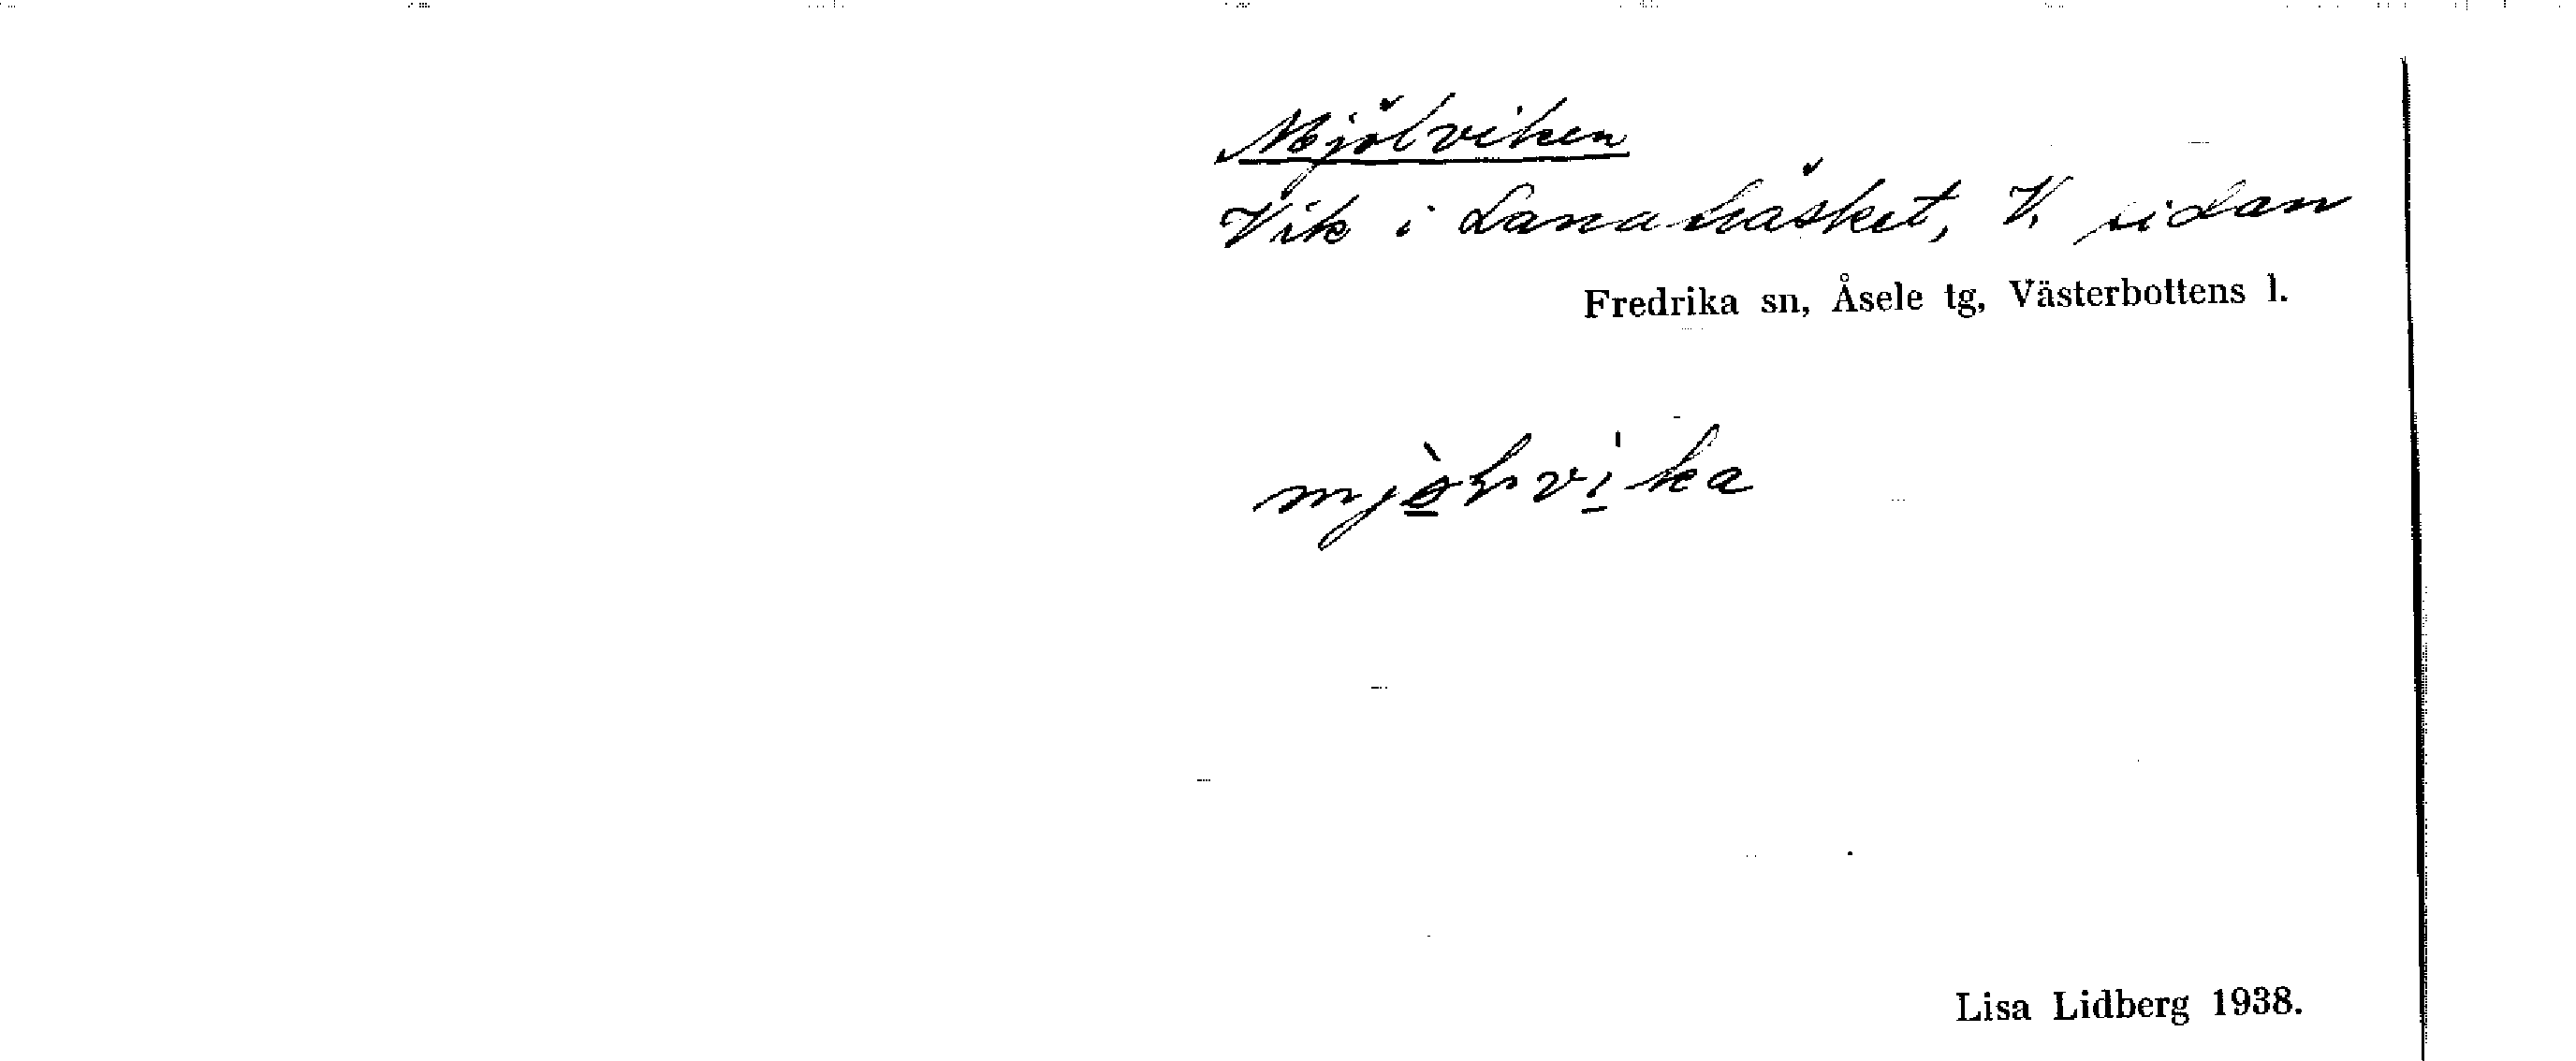 Mjölviken
Vik i Lanaträsket, V. sidan
Fredrika sn, Åsele tg, Västerbottens l.
Lisa Lidberg 1938.